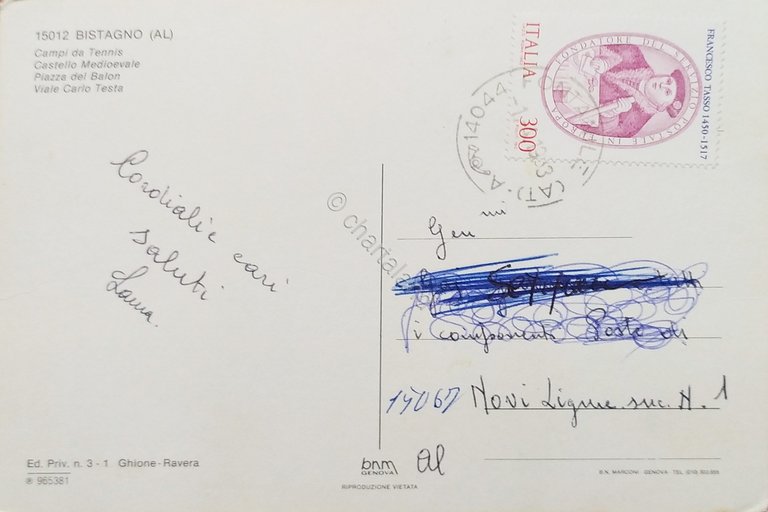 15012 BISTAGNO (AL)
Campi da Tennis
Castello Medioevale
Piazza del Balon
Viale Carlo Testa
ITALIA
300
IL FONDATORE DEL SERVIZIO POSTALE IN EUROPA
FRANCESCO TASSO 1450-1517
14044
(AT)
Cordiali e cari
saluti
Laura.
© charta
Gen mi
i componenti Poste di
15067 Novi Ligure suc. N. 1
Al
Ed. Priv. n. 3 - 1 Ghione-Ravera
® 965381
bnm
GENOVA
RIPRODUZIONE VIETATA
B.N. MARCONI GENOVA TEL. (010)